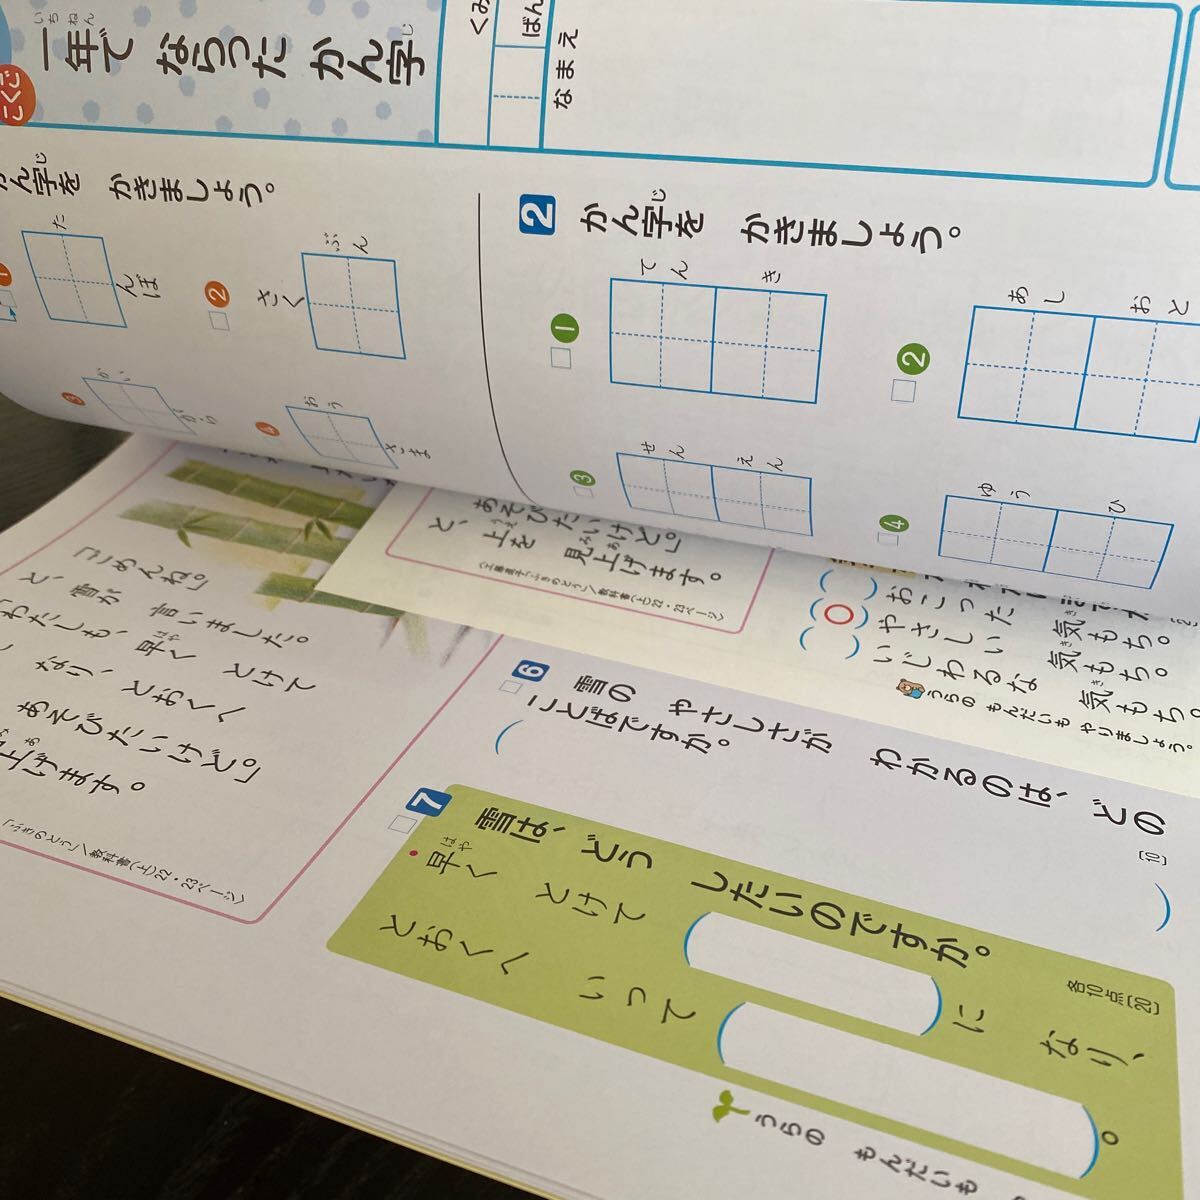 こくご
一年で ならった かん字
いちねん
じ
くみ
ばん
なまえ
かん字を かきましょう。
じ
た
んぼ
2
さく
ぶん
3
かい
がら
4
おう
さま
2 かん字を かきましょう。
じ
1
てん
き
2
あし
おと
3
せん
えん
4
ゆう
ひ
「ごめんね。」
と、雪が 言いました。
わたしも、早く とけて
はや
なり、とおくへ
あそびたいけど。」
上げます。
あ
「ふきのとう」/教科書(上)22・23ページ
あそびたいけど。」
と、上を 見上げます。
うえ
みあ
〈工藤直子「ふきのとう」/教科書(上)22・23ページ〉
( )おこった 気もち。
(○)やさしい 気もち。
( )いじわるな 気もち。
き
うらの もんだいも やりましょう。
6 雪の やさしさが わかるのは、どの
ことばですか。
[10]
( )
7 雪は、どう したいのですか。
各10点[20]
・早く とけて ( )に なり、
はや
とおくへ いって ( )。
うらの もんだいも